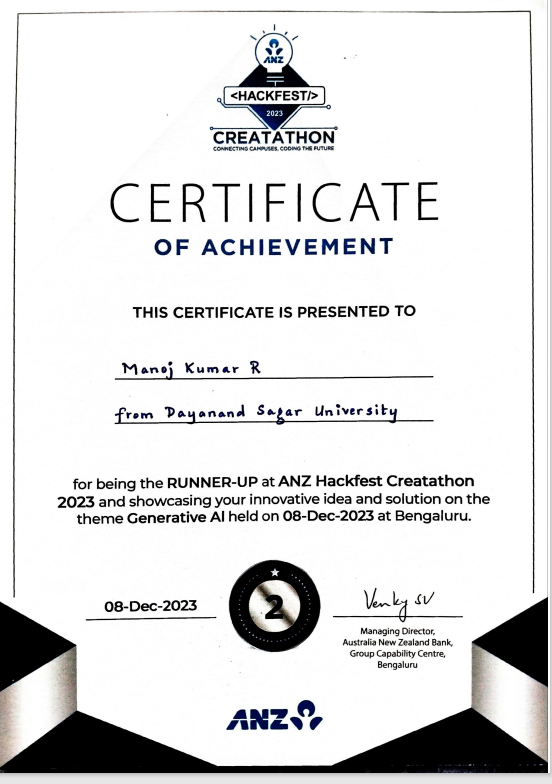 ANZ
<HACKFEST/>
2023
CREATATHON
CONNECTING CAMPUSES, CODING THE FUTURE
CERTIFICATE
OF ACHIEVEMENT
THIS CERTIFICATE IS PRESENTED TO
Manoj Kumar R
from Dayanand Sagar University
for being the RUNNER-UP at ANZ Hackfest Creatathon
2023 and showcasing your innovative idea and solution on the
theme Generative AI held on 08-Dec-2023 at Bengaluru.
08-Dec-2023
2
Venky SV
Managing Director,
Australia New Zealand Bank,
Group Capability Centre,
Bengaluru
ANZ